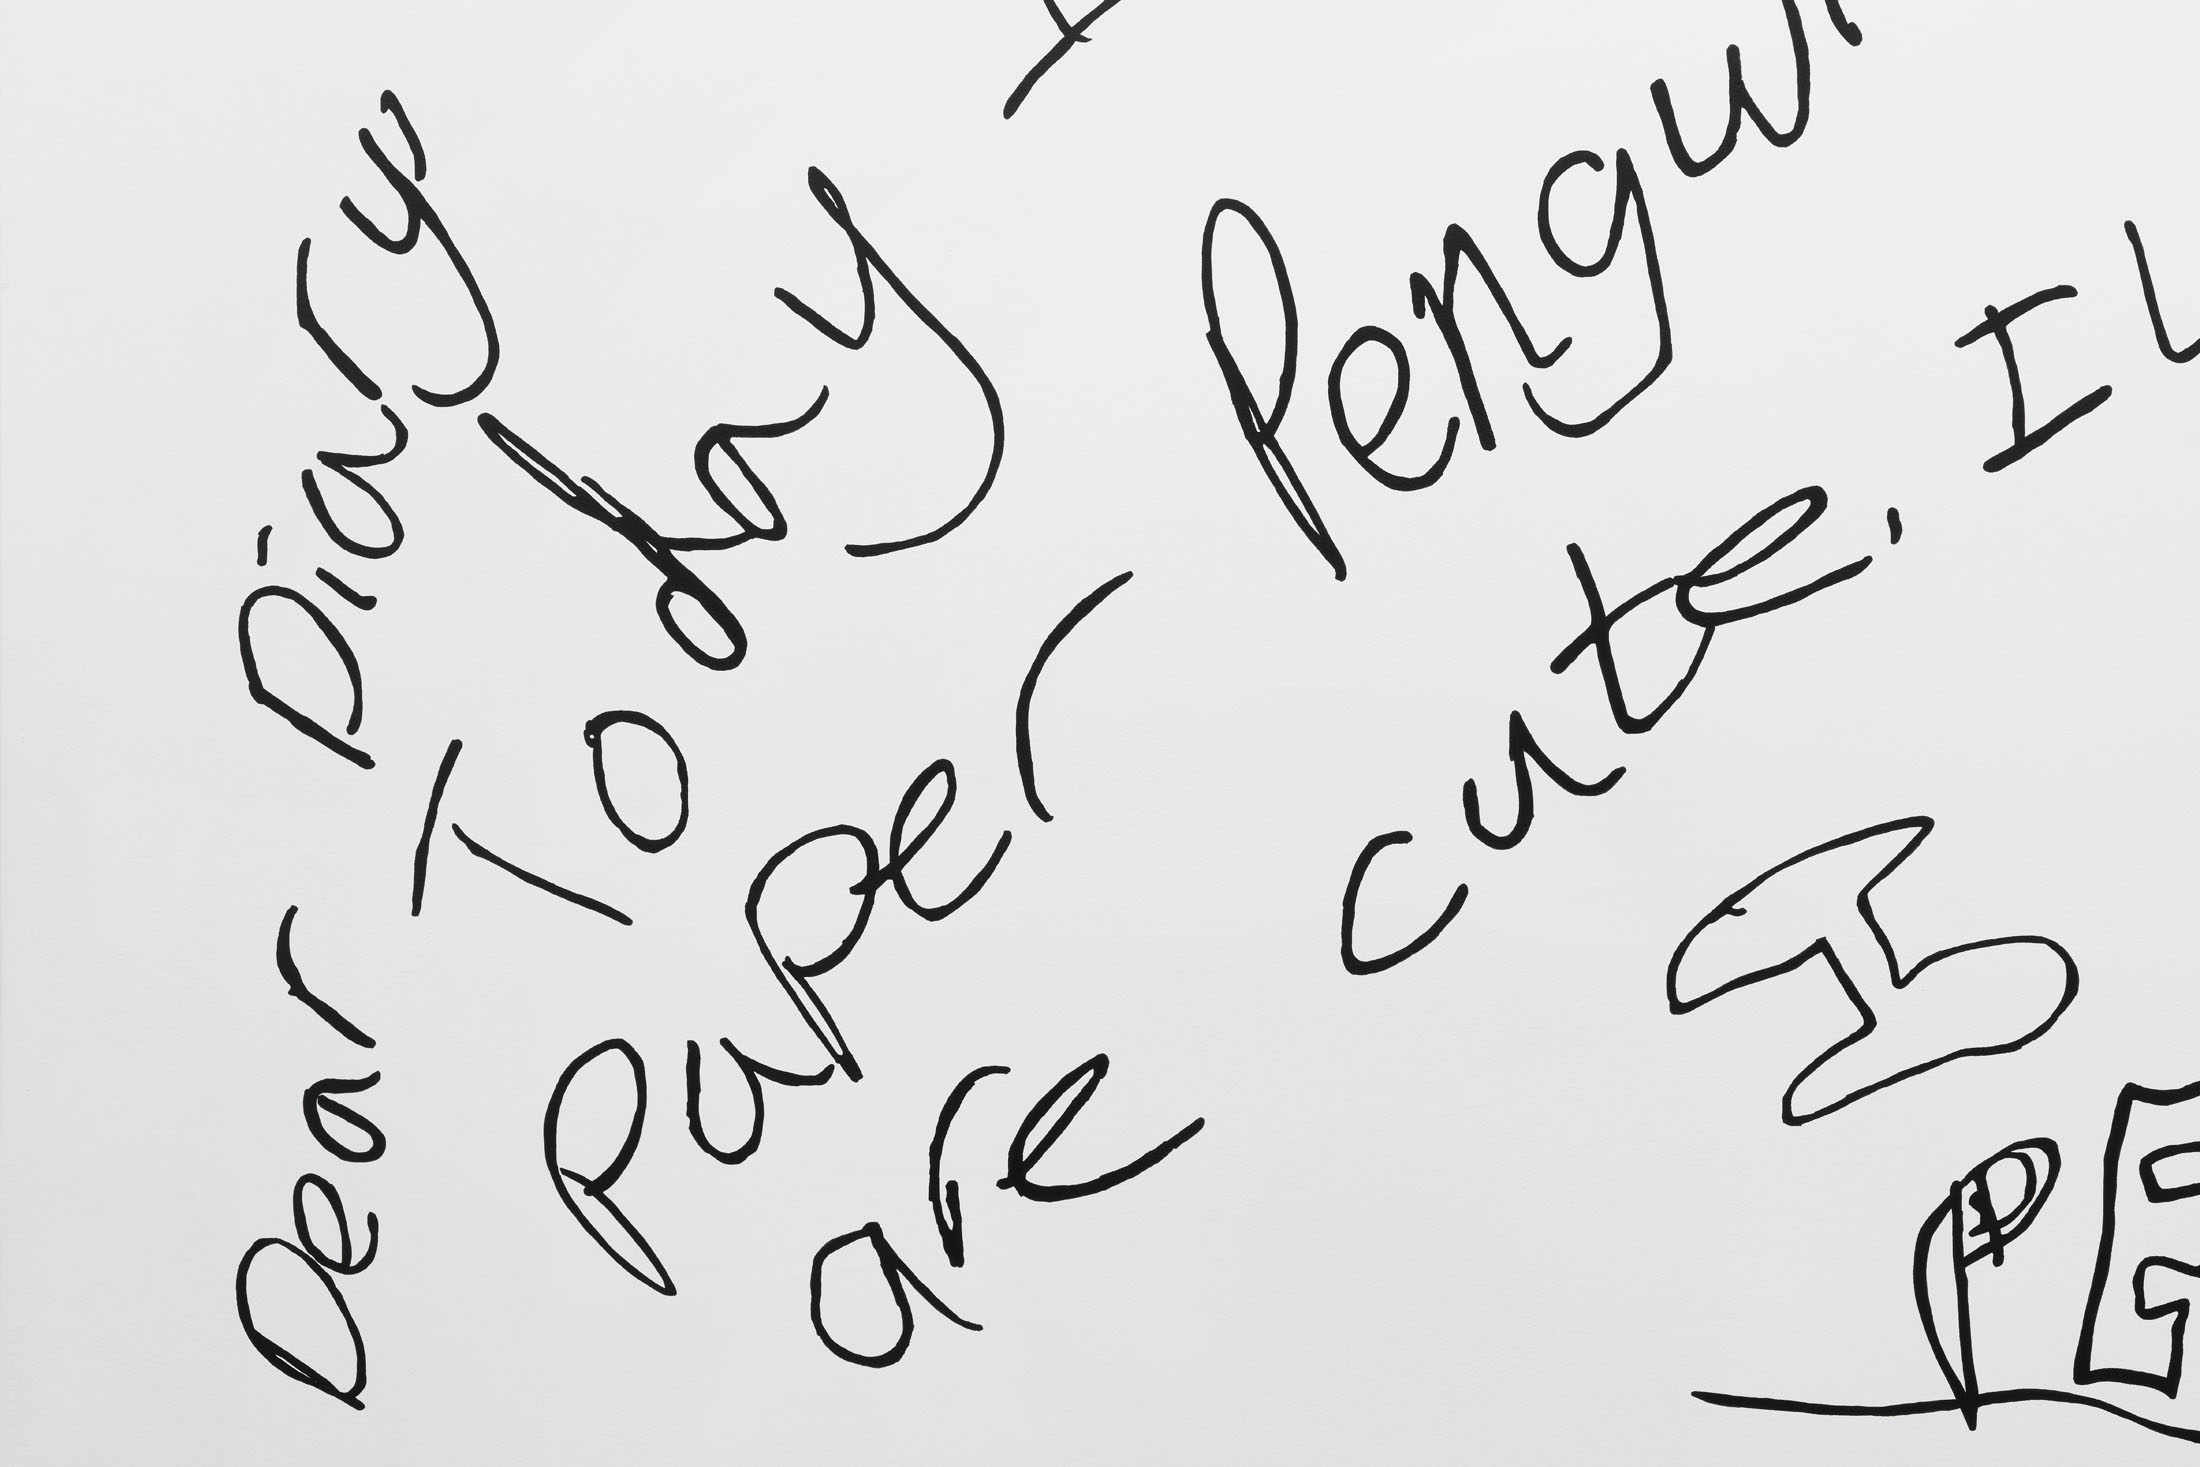 Dear Diary,
Today I
Paper Pengui
are cute. I
I
P